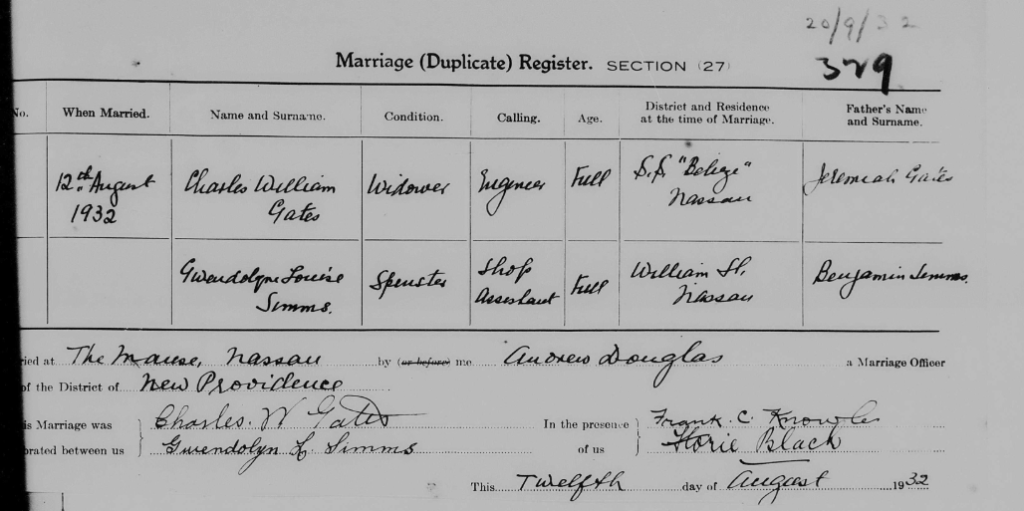 20/9/32
Marriage (Duplicate) Register. SECTION (27)
329
No. When Married. Name and Surname. Condition. Calling. Age. District and Residence at the time of Marriage. Father's Name and Surname.
12th August 1932 Charles William Gates Widower Engineer Full S.S "Belize" Nassau Jeremiah Gates
Gwendolyn Louise Simms. Spinster Shop Assistant Full William St. Nassau Benjamin Simms.
ried at The Manse, Nassau by (or before) me Andrew Douglas a Marriage Officer
of the District of New Providence
is Marriage was Charles. W Gates In the presence Frank. C. Knowles
brated between us Gwendolyn L. Simms of us Florie Black
This Twelfth day of August 1932